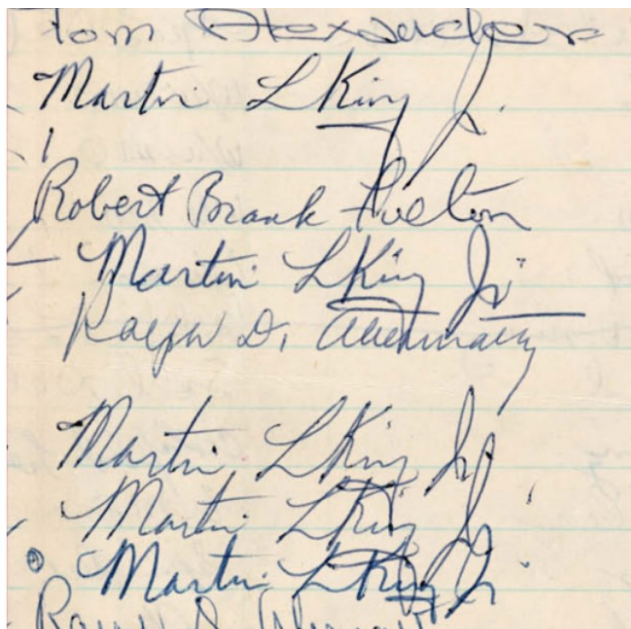 Tom Alexander
Martin L King Jr.
Robert Brank Fulton
Martin L King Jr
Ralph D. Abernathy
Martin L King Jr
Martin L King Jr
Martin L King Jr
Ralph D. Abernathy